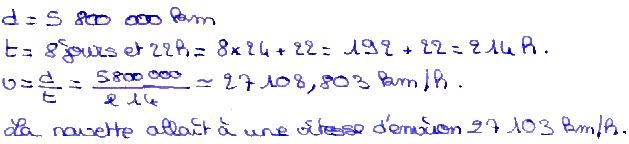 d = 5 800 000 km
t = 8 jours et 22 h = 8 x 24 + 22 = 192 + 22 = 214 h.
v = d/t = 5800 000/214 ≃ 27 108,803 km/h.
La navette allait à une vitesse d'environ 27 103 km/h.